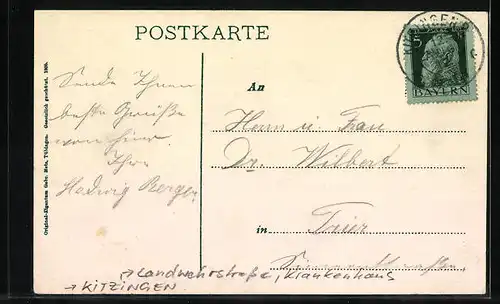 POSTKARTE
KITZINGEN
5
BAYERN
Sende Ihnen
beste Grüße
von hier.
Ihre
Hedwig Berger
An
Herrn u Frau
Dr. Wilbert
in
Trier
→ Landwehrstraße, Krankenhaus
→ KITZINGEN
Original-Eigentum Gebr. Metz, Tübingen. Gesetzlich geschützt. 1909.